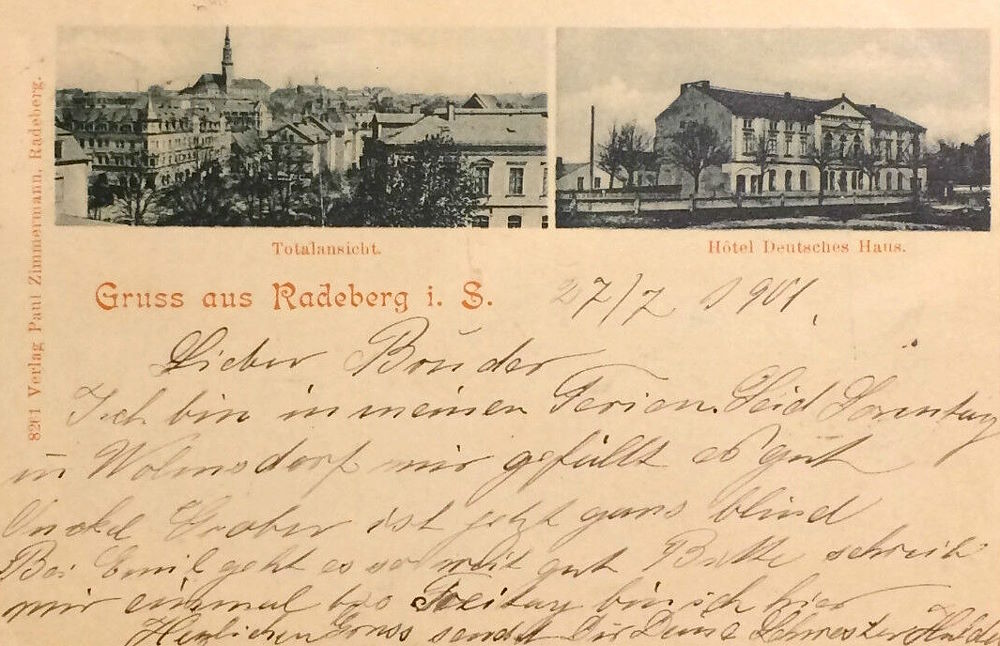 Totalansicht.
Hôtel Deutsches Haus.
Gruss aus Radeberg i. S.
27/7 1901.
Lieber Bruder
Ich bin in meinen Ferien. Seid Sonntag
in Wolmsdorf mir gefällt es gut
Onckel ist jetzt gans blind
Bei Emil geht es so weit gut Bitte schreib
mir einmal bis Freitag bin ich hier
Herzlichen Gruss sendet Dir Deine Schwester
8201 Verlag Paul Zimmermann, Radeberg.